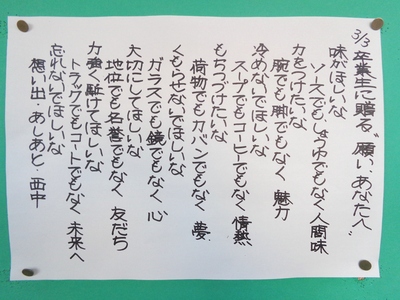 3/3 卒業生に贈る“願い・あなたへ”
味がほしいな
ソースでもしょうゆでもなく人間味
力をつけたいな
腕でも脚でもなく 魅力
冷めないでほしいな
スープでもコーヒーでもなく 情熱
もちつづけたいな
荷物でもカバンでもなく 夢
くもらせないでほしいな
ガラスでも鏡でもなく 心
大切にしてほしいな
地位でも名誉でもなく 友だち
力強く駈けてほしいな
トラックでもコートでもなく 未来へ
忘れないでほしいな
想い出・あしあと・西中